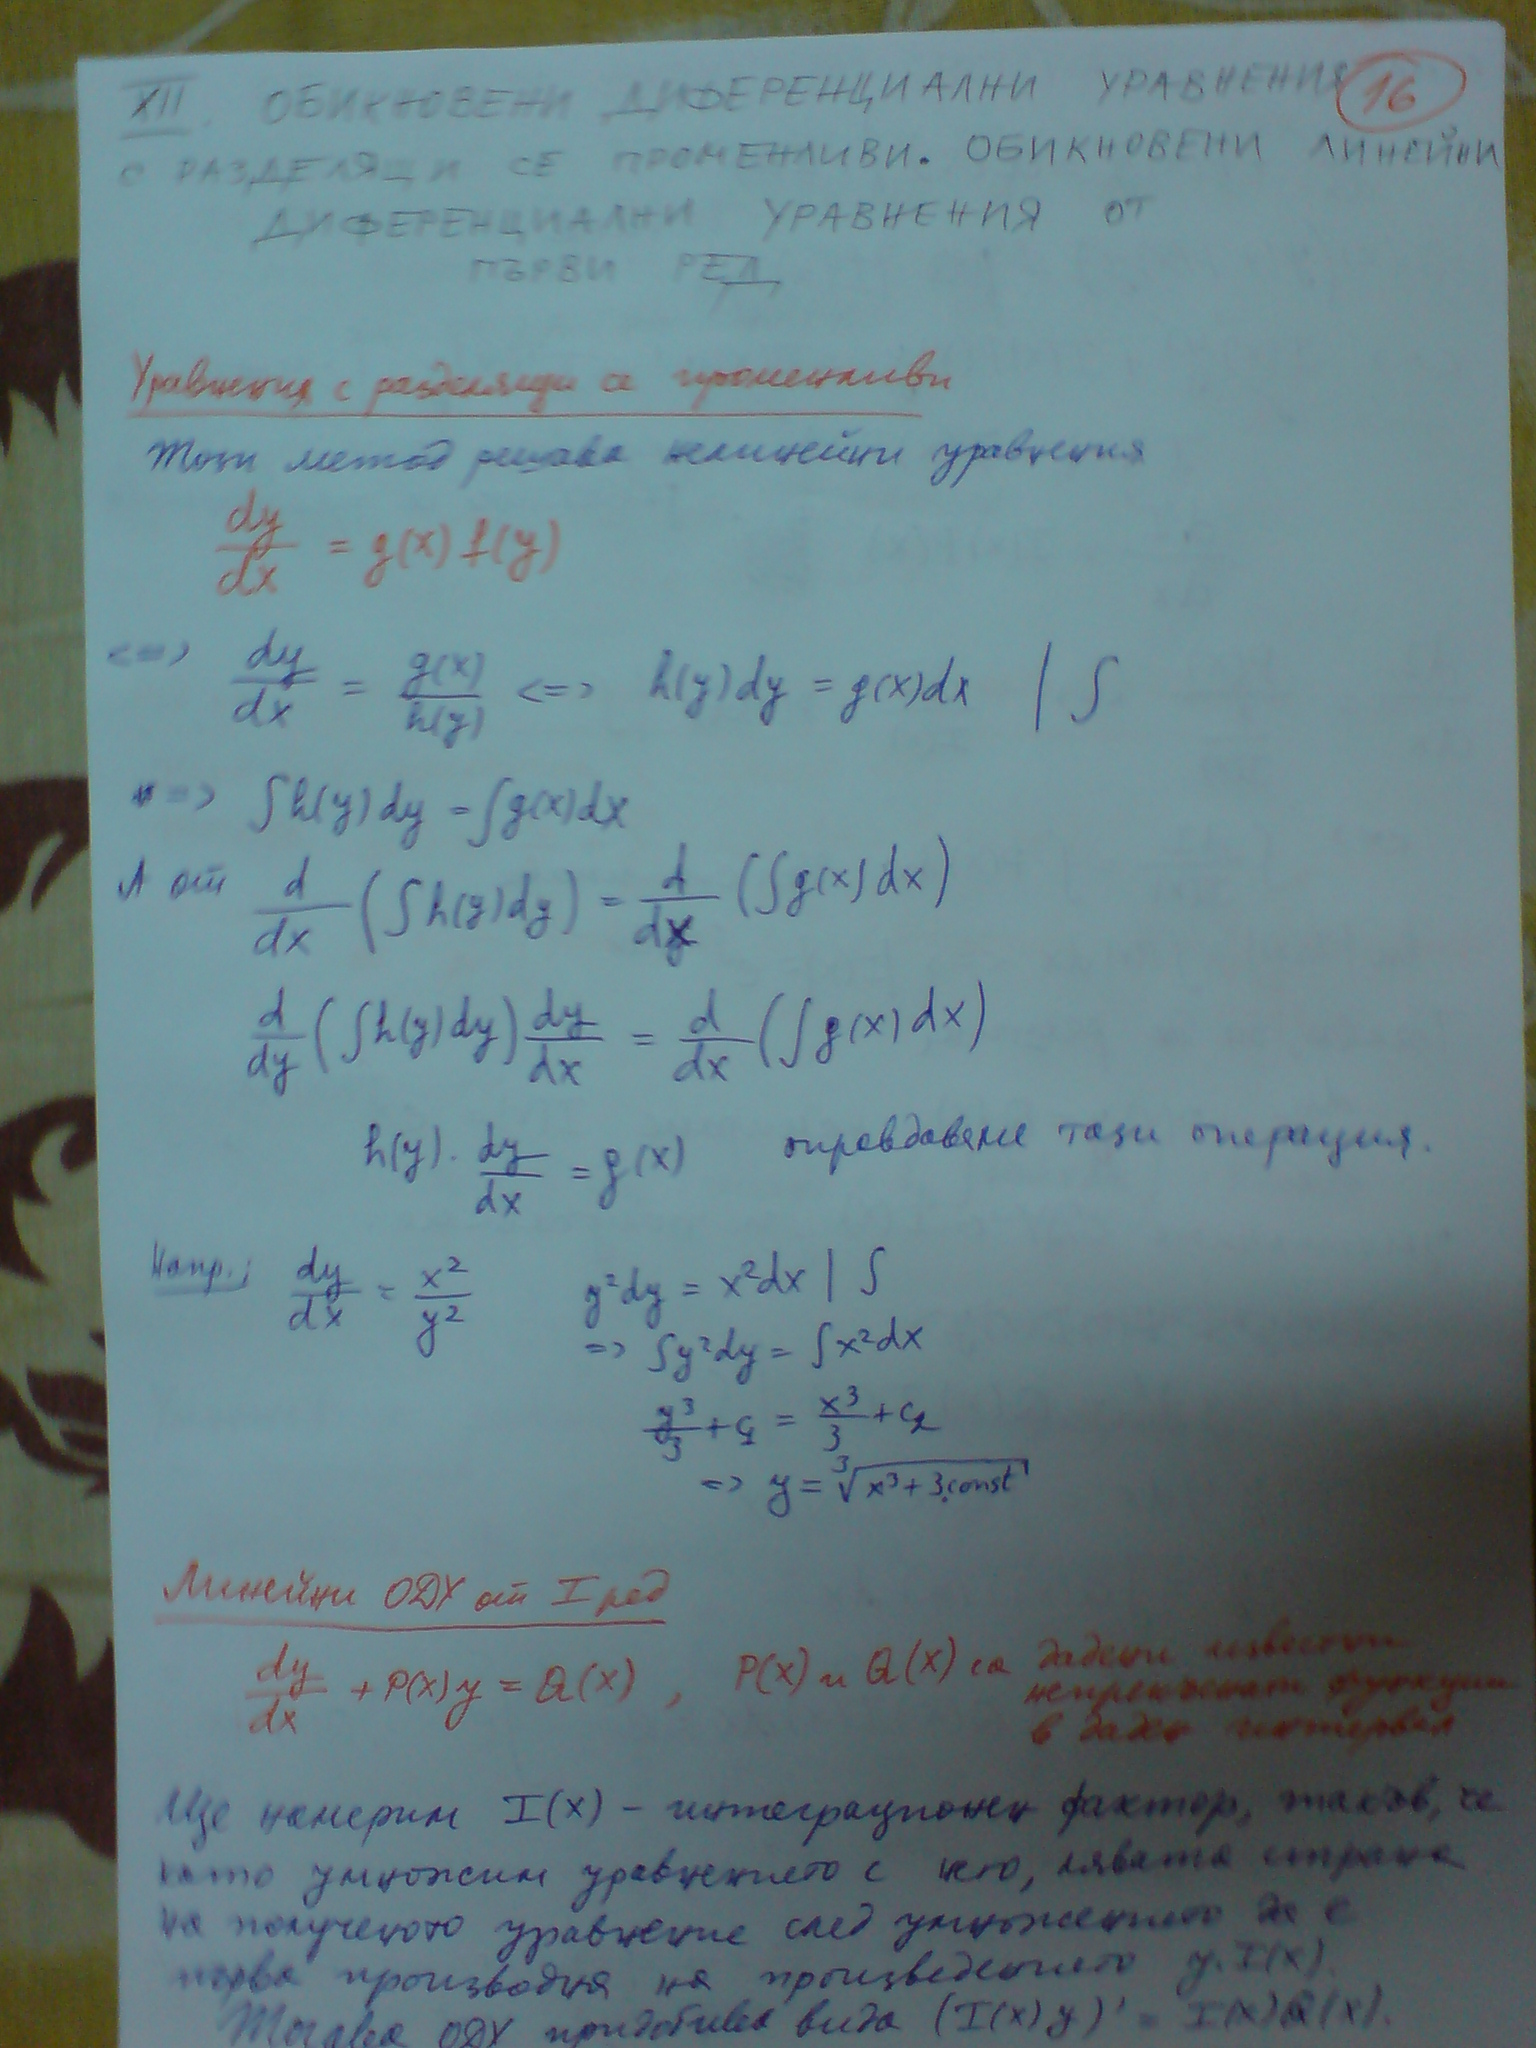 XII. ОБИКНОВЕНИ ДИФЕРЕНЦИАЛНИ УРАВНЕНИЯ 16
С РАЗДЕЛЯЩИ СЕ ПРОМЕНЛИВИ. ОБИКНОВЕНИ ЛИНЕЙНИ
ДИФЕРЕНЦИАЛНИ УРАВНЕНИЯ ОТ
ПЪРВИ РЕД
Уравнения с разделящи се променливи
Този метод решава нелинейни уравнения
dy/dx = g(x) f(y)
<=> dy/dx = g(x)/h(y) <=> h(y)dy = g(x)dx | ∫
=> ∫h(y)dy = ∫g(x)dx
А от d/dx (∫h(y)dy) = d/dx (∫g(x)dx)
d/dy (∫h(y)dy) dy/dx = d/dx (∫g(x)dx)
h(y). dy/dx = g(x) оправдаваме тази операция.
Напр.: dy/dx = x²/y² y²dy = x²dx | ∫
=> ∫y²dy = ∫x²dx
y³/3 + c₁ = x³/3 + c₂
=> y = ∛(x³ + 3.const)
Линейни ОДУ от I ред
dy/dx + P(x)y = Q(x), P(x) и Q(x) са дадени известни
непрекъснати функции
в даден интервал
Ще намерим I(x) – интеграционен фактор, такъв, че
като умножим уравнението с него, лявата страна
на полученото уравнение след умножението да е
първа производна на произведението y.I(x).
Тогава ОДУ придобива вида (I(x)y)' = I(x)Q(x).